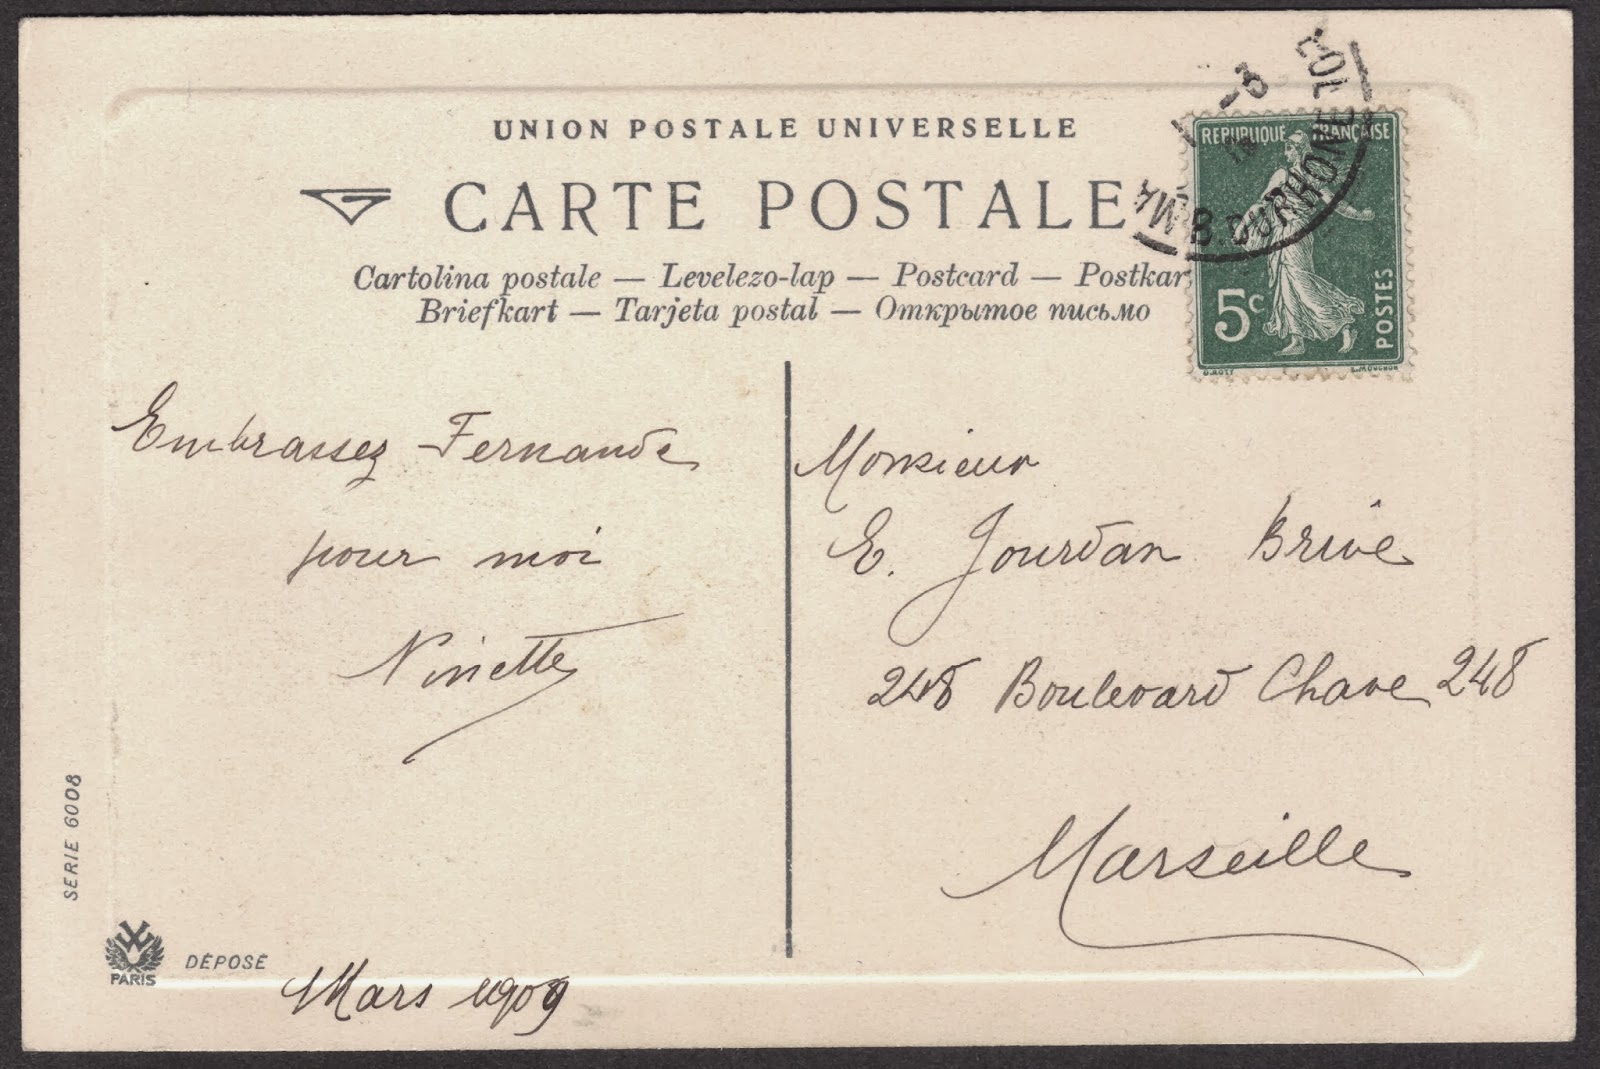 UNION POSTALE UNIVERSELLE
CARTE POSTALE
Cartolina postale — Levelezo-lap — Postcard — Postkar
Briefkart — Tarjeta postal — Открытое письмо
REPUBLIQUE FRANÇAISE
5c
POSTES
O.ROTY
L.MOUCHON
B. DU RHONE
Embrassez Fernande
pour moi
Ninette
Monsieur
E. Jourdan Brive
248 Boulevard Chave 248
Marseille
SERIE 6008
PARIS
DÉPOSÉ
Mars 1909